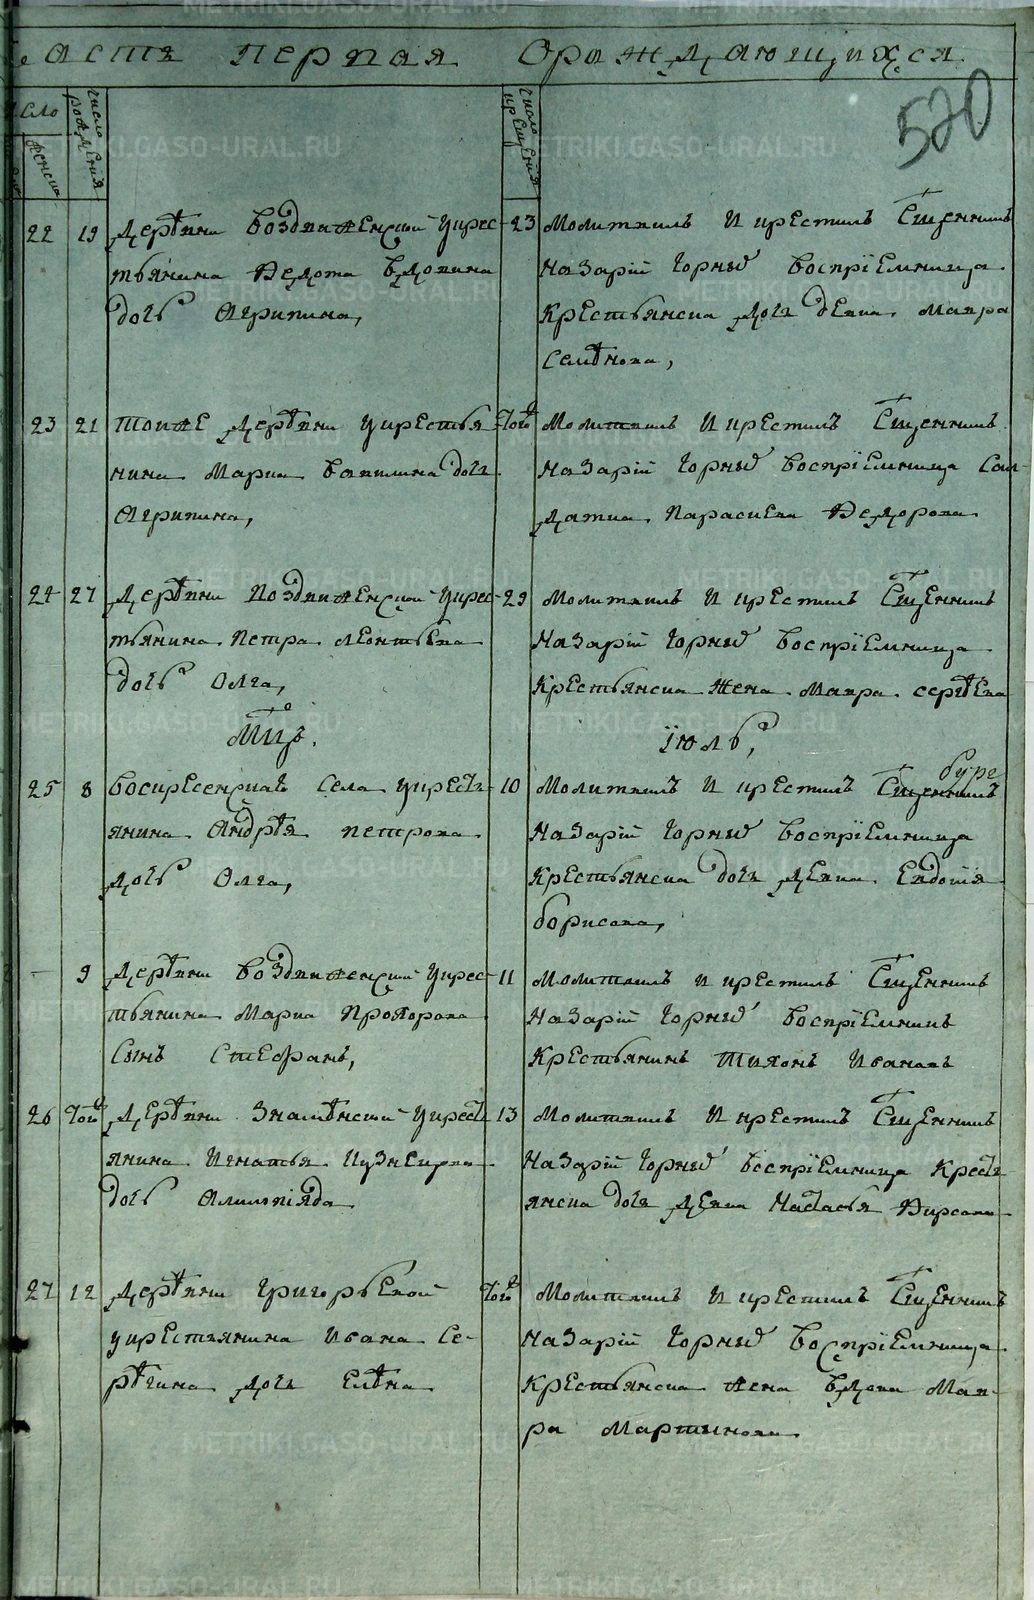 Часть первая О раждающихся
520
число женска
число рождения
число крещения
22 19 Деревни Воздвиженской у крес-
тьянина Федота Вдовина
дочь Агрипина,
23 Молитвилъ и крестилъ Священникъ
Назарій Чорный воспріемница
Крестьянска дочь девка Мавра
Семѣнова,
23 21 Тоиже деревни у крестья
нина Марка Вавилина дочь
Агрипина,
Того Молитвилъ и крестилъ Священникъ
Назарій Чорный воспріемница Сол-
датка Параскева Федорова
24 27 Деревни Воздвиженской у крес-
тьянина Петра Леонтьева
дочь Олга,
29 Молитвилъ и крестилъ Священникъ
Назарій Чорный воспріемница
Крестьянска жена Мавра Сергѣева
Мцъ. Іюль,
25 8 Воскресенскаго Села у кресть
янина Андрѣя Петрова
дочь Олга,
10 Молитвилъ и крестилъ Священникъ
Назарій Чорный воспріемница
Крестьянска дочь девка Евдотія
Борисова,
9 Деревни Воздвиженской у крес-
тьянина Марка Прохорова
Сынъ Стефанъ,
11 Молитвилъ и крестилъ Священникъ
Назарій Чорный воспріемникъ
Крестьянинъ Тихонъ Ивановъ
26 Того Деревни Знамѣнской у кресть
янина Игнатья
дочь Алимпіяда
13 Молитвилъ и крестилъ Священникъ
Назарій Чорный воспріемница Кресть
янска дочь девка Настасья Фирсова
27 12 Деревни Григорьевской
у крестьянина Ивана Се-
рѣгина дочь Елѣна
Того Молитвилъ и крестилъ Священникъ
Назарій Чорный воспріемница
Крестьянска жена вдова Мав-
ра Мартинова